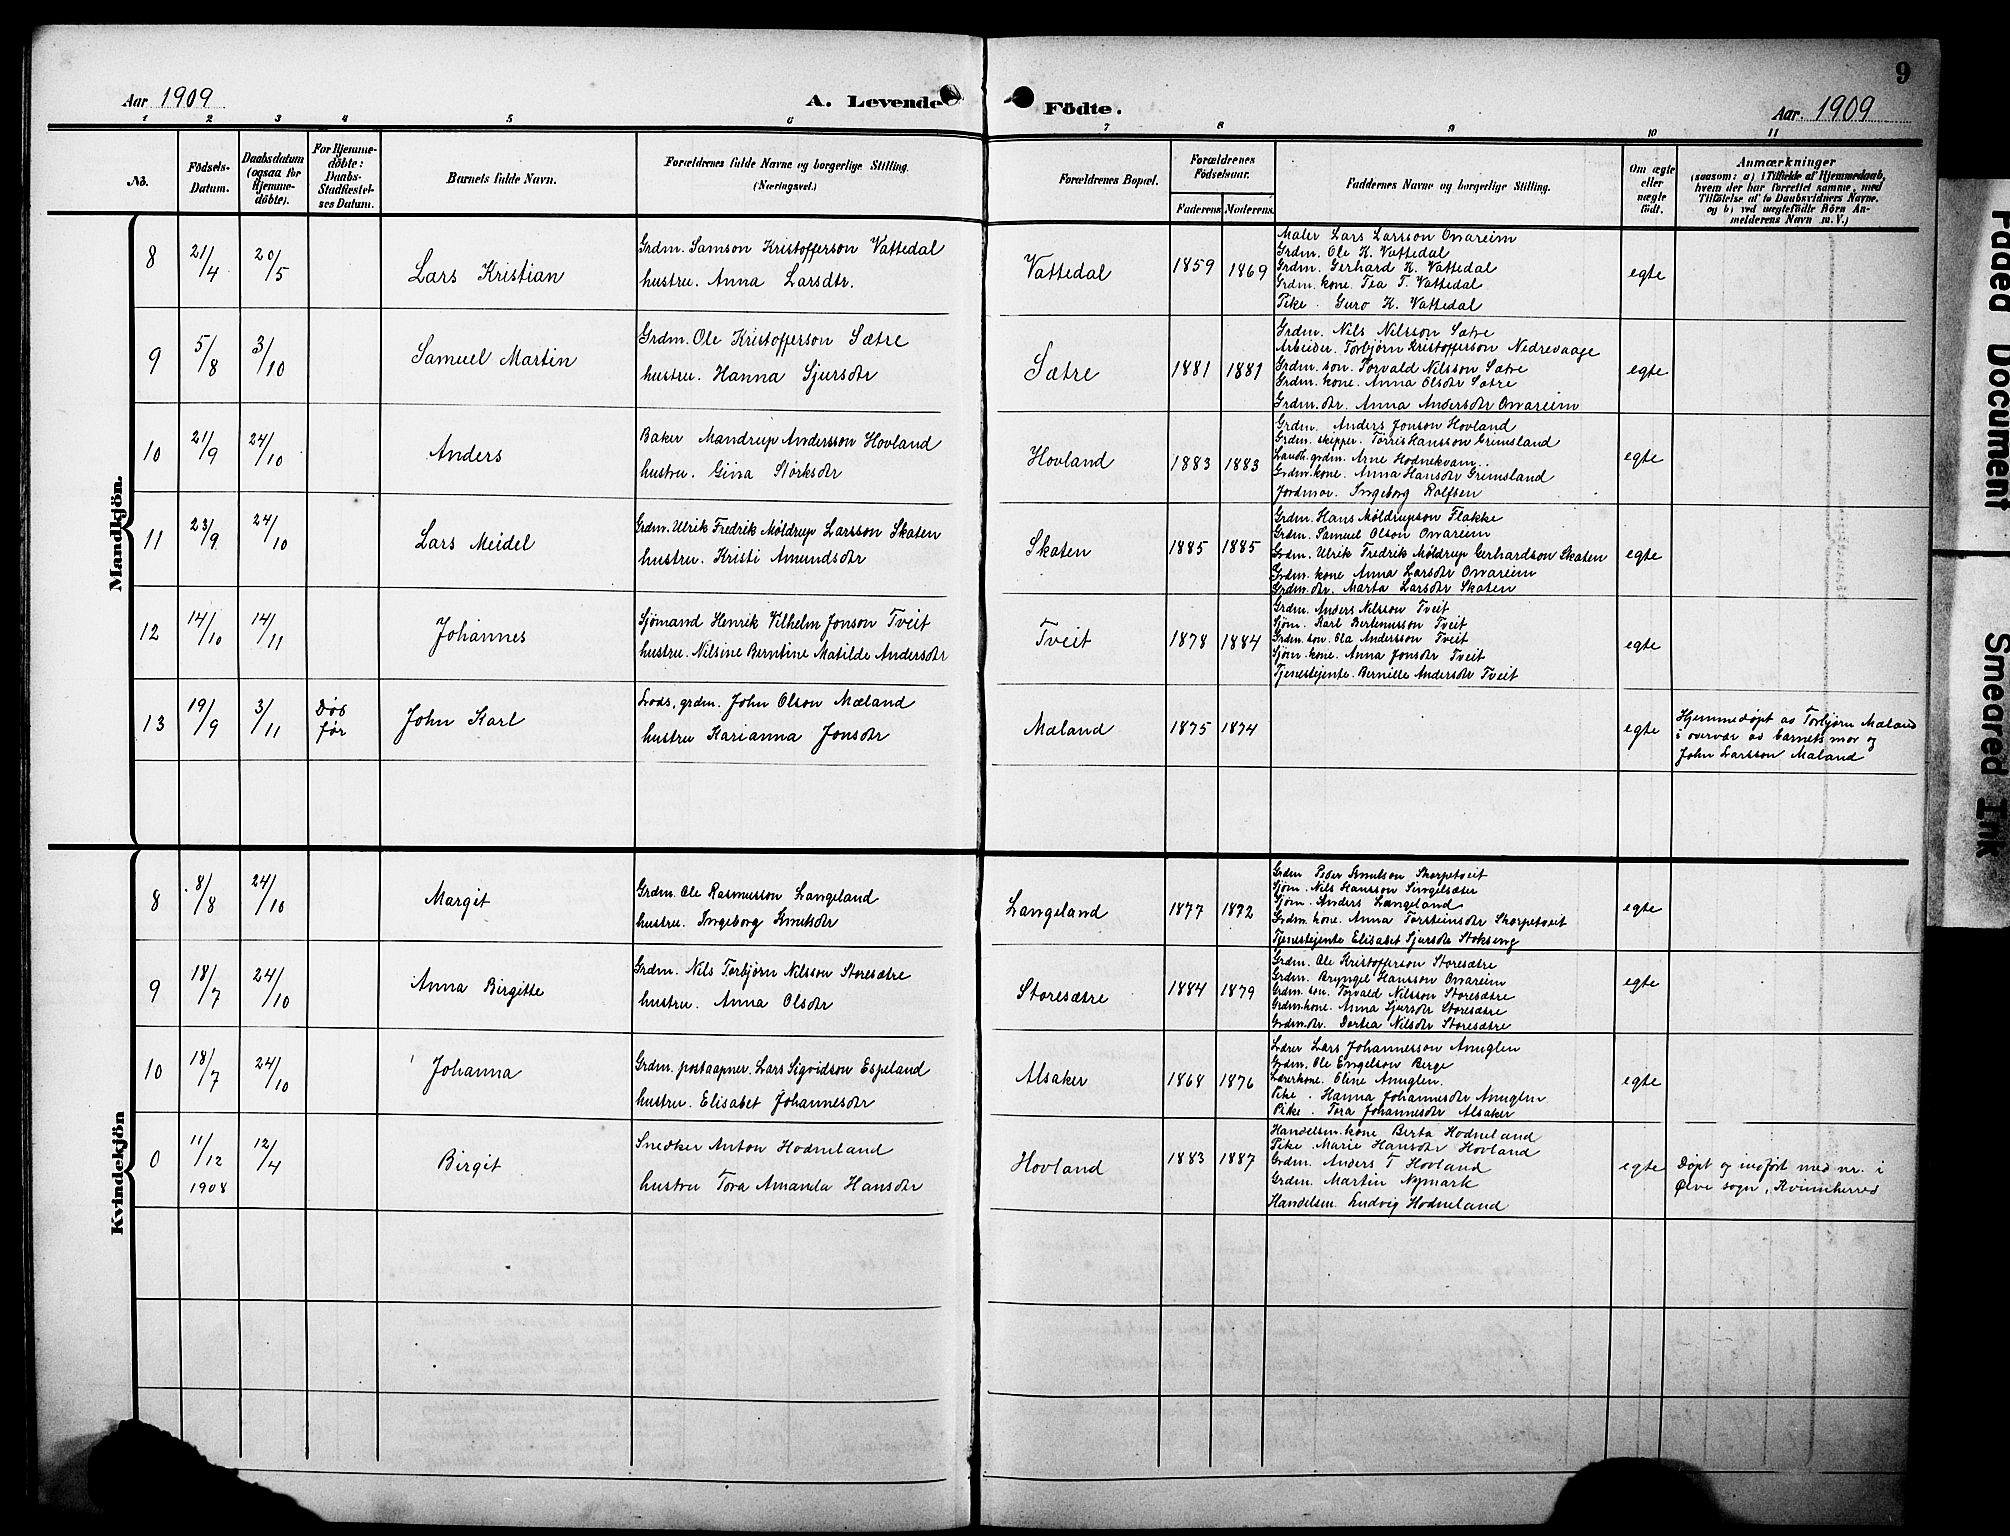 9
Aar 1909
A. Levende Födte.
Aar 1909
1 2 3 4 5 6 7 8 9 10 11
No.
Födsels-
Datum.
Daabsdatum
(ogsaa for
Hjemme-
döbte).
For Hjemme-
döbte:
Daabs-
Stadfæstel-
ses Datum.
Barnets fulde Navn.
Forældrenes fulde Navne og borgerlige Stilling.
(Næringsvei.)
Forældrenes Bopæl.
Forældrenes
Födselsaar.
Faderens Moderens.
Faddernes Navne og borgerlige Stilling.
Om ægte
eller
uægte
födt.
Anmærkninger
(saasom: a) i Tilfælde af Hjemmedaab,
hvem der har forrettet samme, med
Tilföielse af to Daabsvidners Navne.
og b) ved uægtefödte Börn An-
melderens Navn m. V.)
Mandkjön.
8 21/4 20/5 Lars Kristian
Grdm. Samson Kristofferson Vattedal
hustru. Anna Larsdtr.
Vattedal 1859 1869
Maler Lars Larsson Onareim
Grdm. Ole K. Vattedal
Grdm. Gerhard K. Vattedal
Grdm. kone. Tea T. Vattedal
Pike. Guro K. Vattedal
egte
9 5/8 3/10 Samuel Martin
Grdm. Ole Kristofferson Sætre
hustru. Hanna Sjursdtr
Sætre 1881 1881
Grdm. Nils Nilsson Sætre
Arbeider. Torbjørn Kristofferson Nedrevaage
Grdm. son. Torvald Nilsson Sætre
Grdm. kone. Anna Olsdtr Sætre
Grdm. dtr. Anna Andersdtr Onareim
egte
10 21/9 24/10 Anders
Baker Mandrup Andersson Hovland
hustru. Gina Størksdtr
Hovland 1883 1883
Grdm. Anders Jonson Hovland
Grdm. skipper. Tørris Hansson Grimsland
Landh. grdm. Arne Hodnekvam
Grdm. kone. Anna Hansdtr Grimsland
Jordmor. Ingeborg Rolfsen
egte
11 23/9 24/10 Lars Meidel
Grdm. Ulrik Fredrik Møldrup Larsson Skaten
hustru. Kristi Amundsdtr
Skaten 1885 1885
Grdm. Hans Møldrupson Flakke
Grdm. Samuel Olson Onareim
Grdm. Ulrik Fredrik Møldrup Gerhardson Skaten
Grdm. kone Anna Larsdtr Onareim
Grdm. dtr. Marta Larsdtr Skaten
egte
12 14/10 14/11 Johannes
Sjømand Henrik Vilhelm Jonson Tveit
hustru. Nilsine Berntine Matilde Andersdtr
Tveit 1878 1884
Grdm. Anders Nilsson Tveit
Sjøm. Karl Bertenusson Tveit
Grdm. son. Ola Andersson Tveit
Sjøm. kone. Anna Jonsdtr Tveit
Tjenestejente. Bernille Andersdtr Tveit
egte
13 19/9 3/11 Død
før
John Karl
Lods, grdm. John Olson Mæland
hustru Karianna Jonsdtr
Mæland 1875 1874
egte
Hjemmedøpt av Torbjørn Mæland
i overvær av barnets mor og
John Larsson Mæland
Kvindekjön
8 8/8 24/10 Margit
Grdm. Ole Rasmusson Langeland
hustru. Ingeborg Knutsdtr
Langeland 1877 1872
Grdm Peder Knutson Skorpetveit
Sjøm. Nils Hansson Singelsæter
Sjøm. Anders Langeland
Grdm. kone. Anna Torsteinsdtr Skorpetveit
Tjenestejente Elisabet Sjursdtr Stokseng
egte
9 18/7 24/10 Anna Birgitte
Grdm. Nils Torbjørn Nilsson Storesætre
hustru. Anna Olsdtr
Storesætre 1884 1879
Grdm. Ole Kristofferson Storesætre
Grdm. Bryngel Hansson Onareim
Grdm. son. Torvald Nilsson Storesætre
Grdm. kone. Anna Sjursdtr Storesætre
Grdm. dtr. Dortea Nilsdtr Storesætre
egte
10 18/7 24/10 Johanna
Grdm. postaapner. Lars Sigvidson Espeland
hustru. Elisabet Johannesdtr
Alsaker 1868 1876
Lærer Lars Johannesson Anuglen
Grdm. Ole Engelson Berge
Lærerkone. Oline Anuglen.
Pike. Hanna Johannesdtr Anuglen
Pike. Tora Johannesdtr Alsaker
egte
0 11/12 1908 12/4 Birgit
Snedker Anton Hodneland
hustru Tora Amanda Hansdtr
Hovland 1883 1887
Handelsm. kone Berta Hodneland
Pike. Marie Hansdtr Hovland
Grdm. Anders T Hovland
Grdm. Martin Nymark
Handelsm. Ludvig Hodneland
egte
Døpt og indført med nr. i
Ølve sogn, Kvinnherred
Faded Document
Smeared Ink